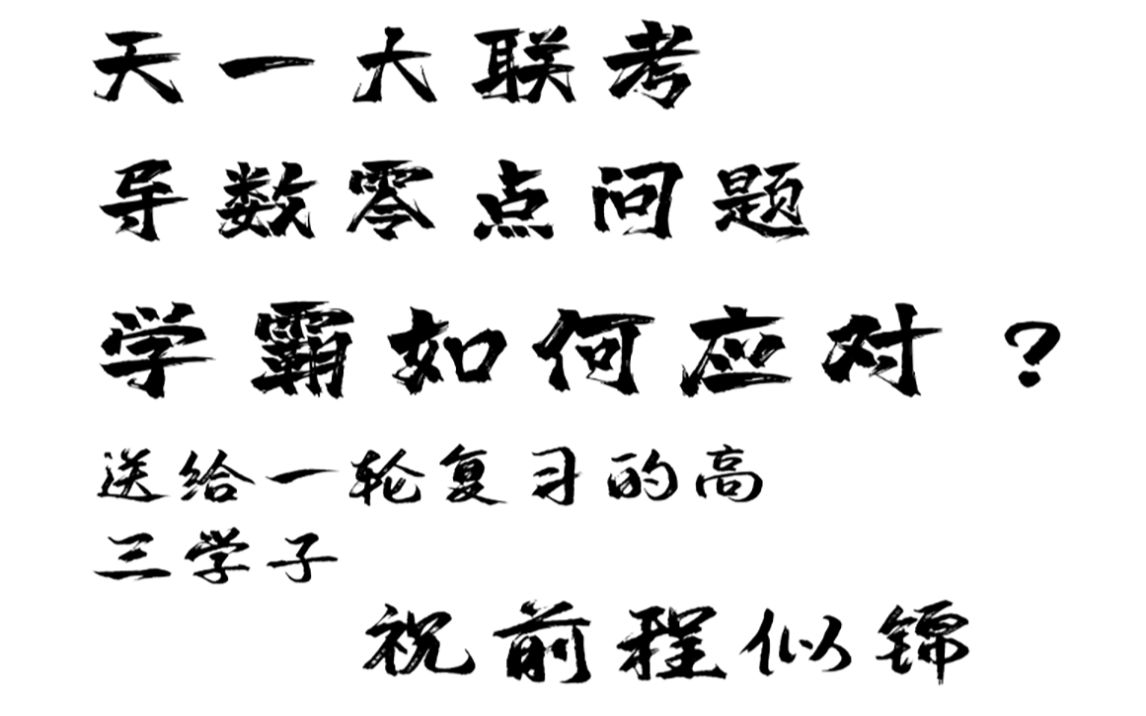 天一大联考
导数零点问题
学霸如何应对？
送给一轮复习的高
三学子
祝前程似锦